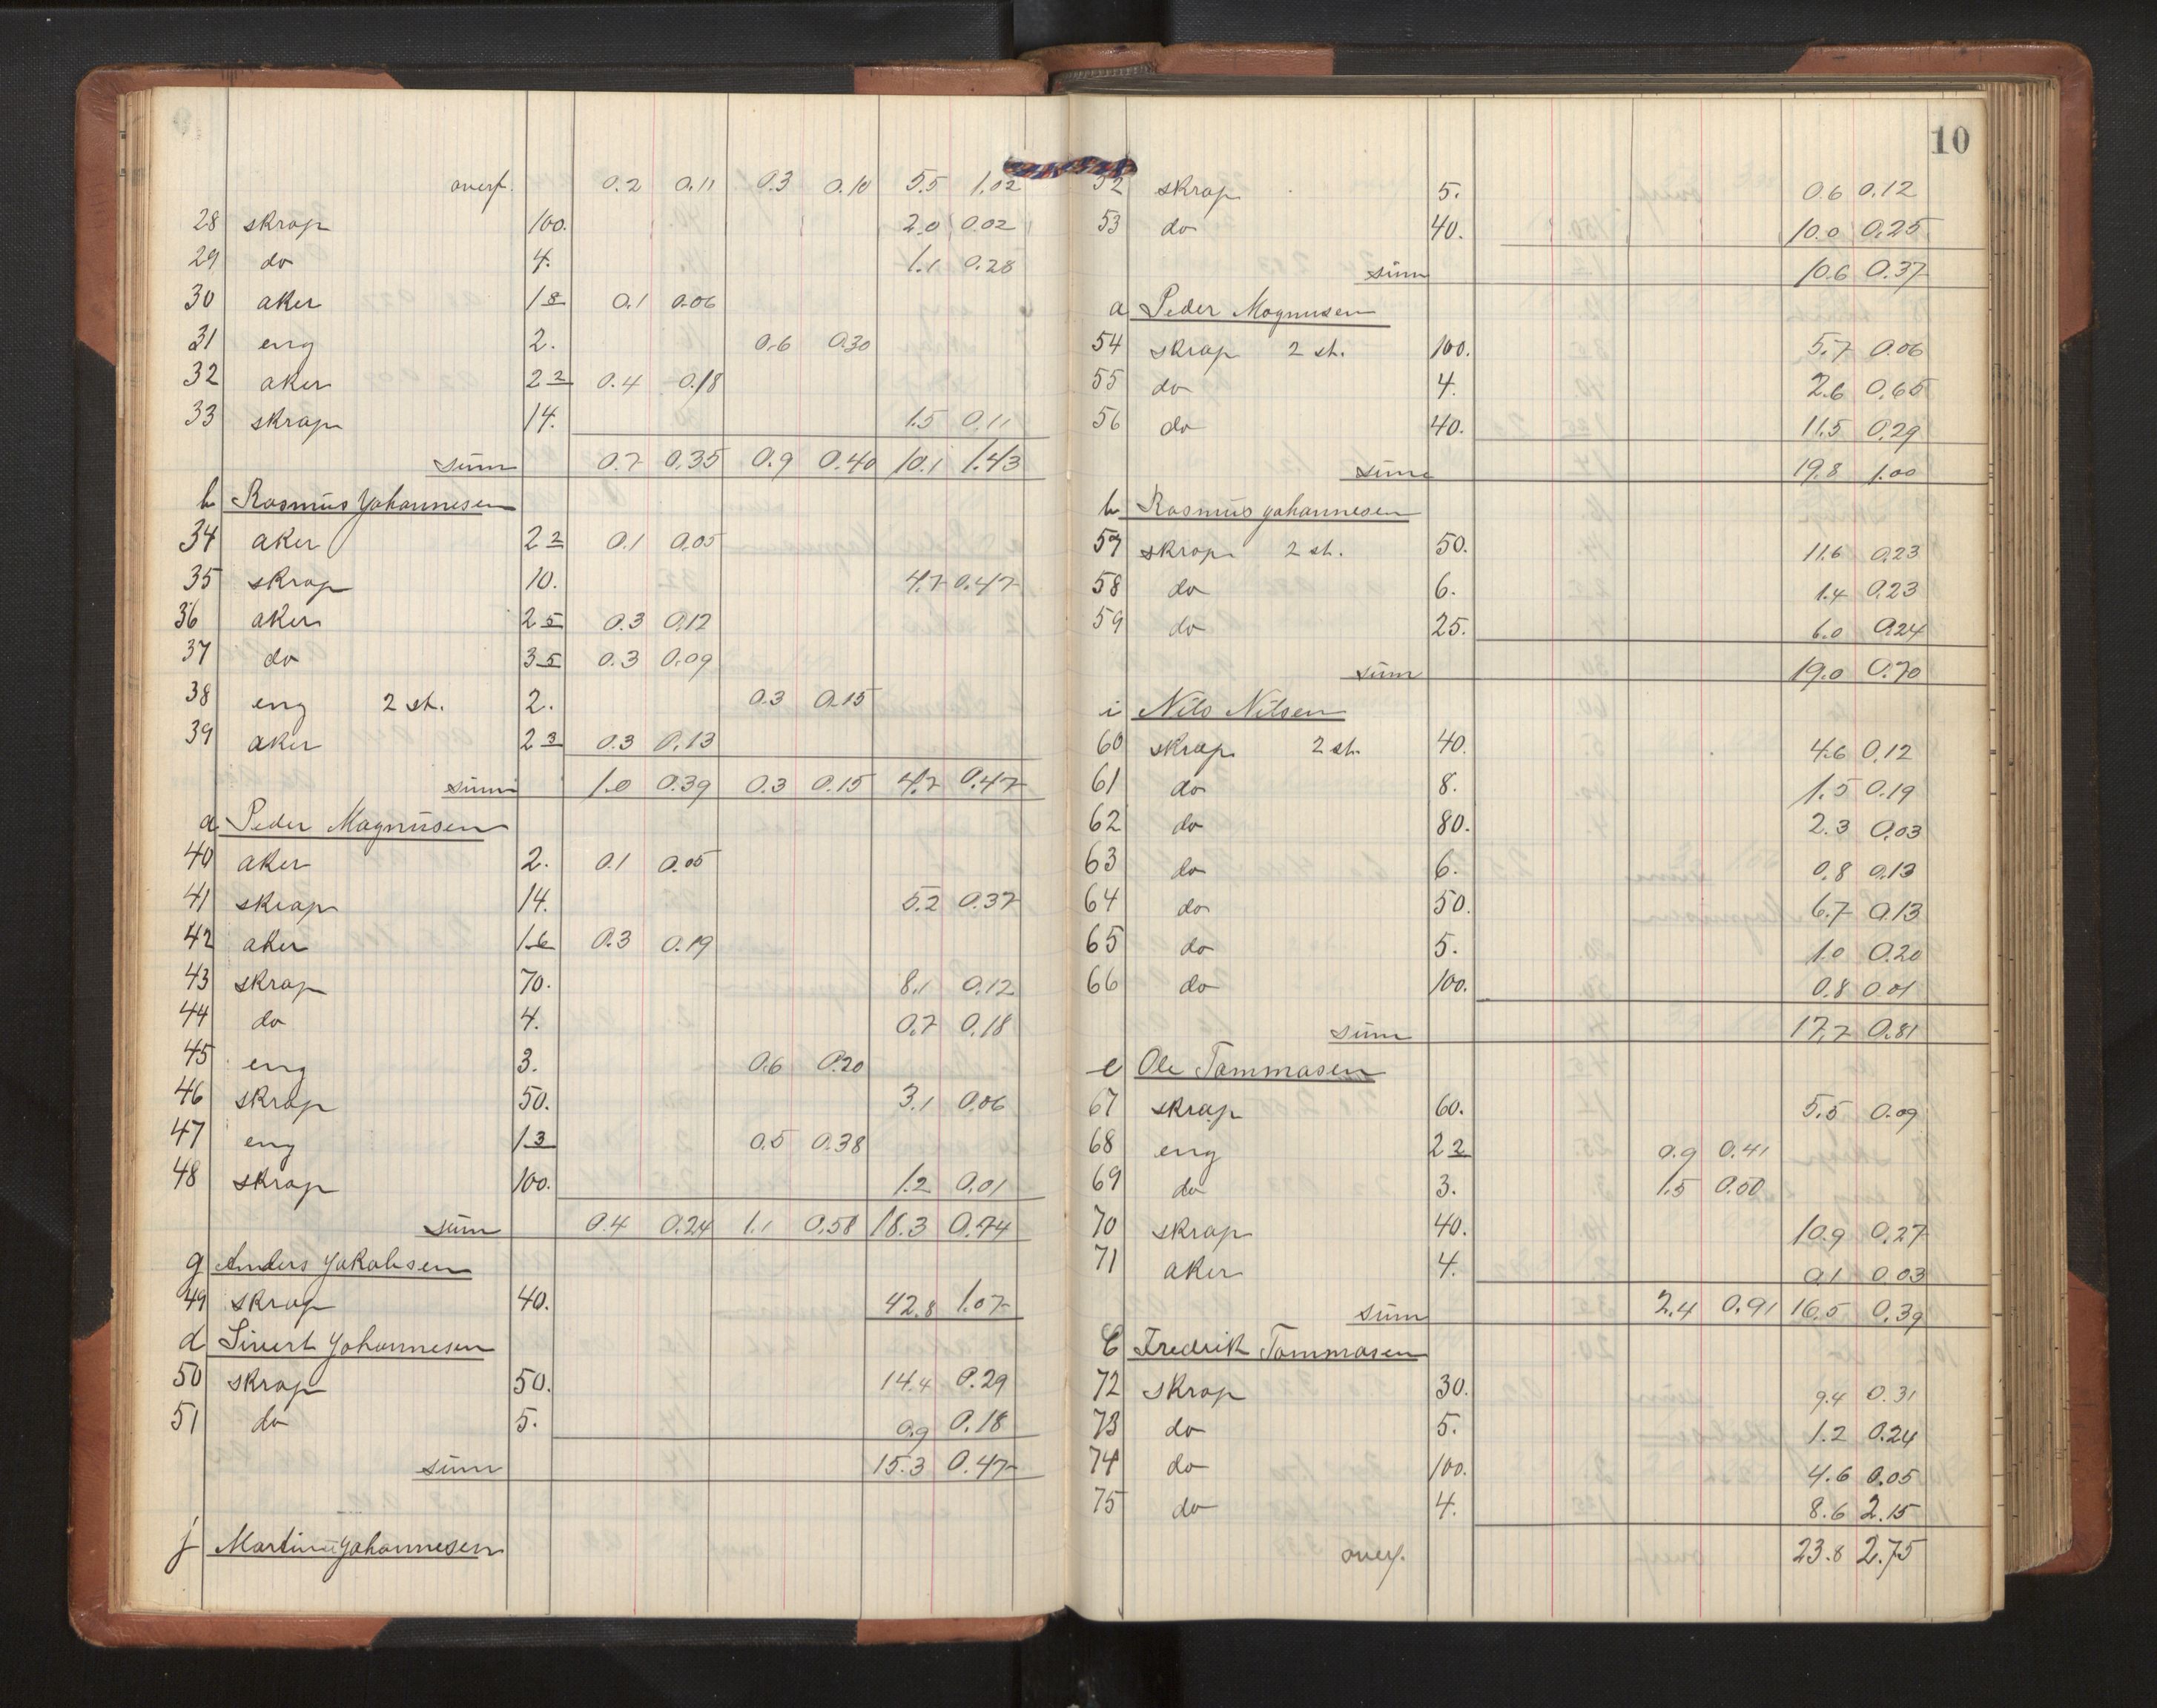 overf. 0.2 0.11 0.3 0.10 5.5 1.02
28 skrap 100. 2.0 0.02
29 do 4. 1.1 0.28
30 aker 1 8 0.1 0.06
31 eng 2. 0.6 0.30
32 aker 2 2 0.4 0.18
33 skrap 14. 1.5 0.11
sum 0.7 0.35 0.9 0.40 10.1 1.43
b Rasmus Johannesen
34 aker 2 2 0.1 0.05
35 skrap 10. 4.7 0.47
36 aker 2 5 0.3 0.12
37 do 3 5 0.3 0.09
38 eng 2 st. 2. 0.3 0.15
39 aker 2 3 0.3 0.13
sum 1.0 0.39 0.3 0.15 4.7 0.47
a Peder Magnusen
40 aker 2. 0.1 0.05
41 skrap 14. 5.2 0.37
42 aker 1 6 0.3 0.19
43 skrap 70. 8.1 0.12
44 do 4. 0.7 0.18
45 eng 3. 0.6 0.20
46 skrap 50. 3.1 0.06
47 eng 1 3 0.5 0.38
48 skrap 100. 1.2 0.01
sum 0.4 0.24 1.1 0.58 18.3 0.74
g Anders Jakobsen
49 skrap 40. 42.8 1.07
d Sivert Johannesen
50 skrap 50. 14.4 0.29
51 do 5. 0.9 0.18
sum 15.3 0.47
j Martinus Johannesen
10
52 skrap 5. 0.6 0.12
53 do 40. 10.0 0.25
sum 10.6 0.37
a Peder Magnusen
54 skrap 2 st. 100. 5.7 0.06
55 do 4. 2.6 0.65
56 do 40. 11.5 0.29
sum 19.8 1.00
b Rasmus Johannesen
57 skrap 2 st. 50. 11.6 0.23
58 do 6. 1.4 0.23
59 do 25. 6.0 0.24
sum 19.0 0.70
i Nils Nilsen
60 skrap 2 st. 40. 4.6 0.12
61 do 8. 1.5 0.19
62 do 80. 2.3 0.03
63 do 6. 0.8 0.13
64 do 50. 6.7 0.13
65 do 5. 1.0 0.20
66 do 100. 0.8 0.01
sum 17.7 0.81
e Ole Tommasen
67 skrap 60. 5.5 0.09
68 eng 2 2 0.9 0.41
69 do 3. 1.5 0.50
70 skrap 40. 10.9 0.27
71 aker 4. 0.1 0.03
sum 2.4 0.91 16.5 0.39
c Fredrik Tommasen
72 skrap 30. 9.4 0.31
73 do 5. 1.2 0.24
74 do 100. 4.6 0.05
75 do 4. 8.6 2.15
overf. 23.8 2.75